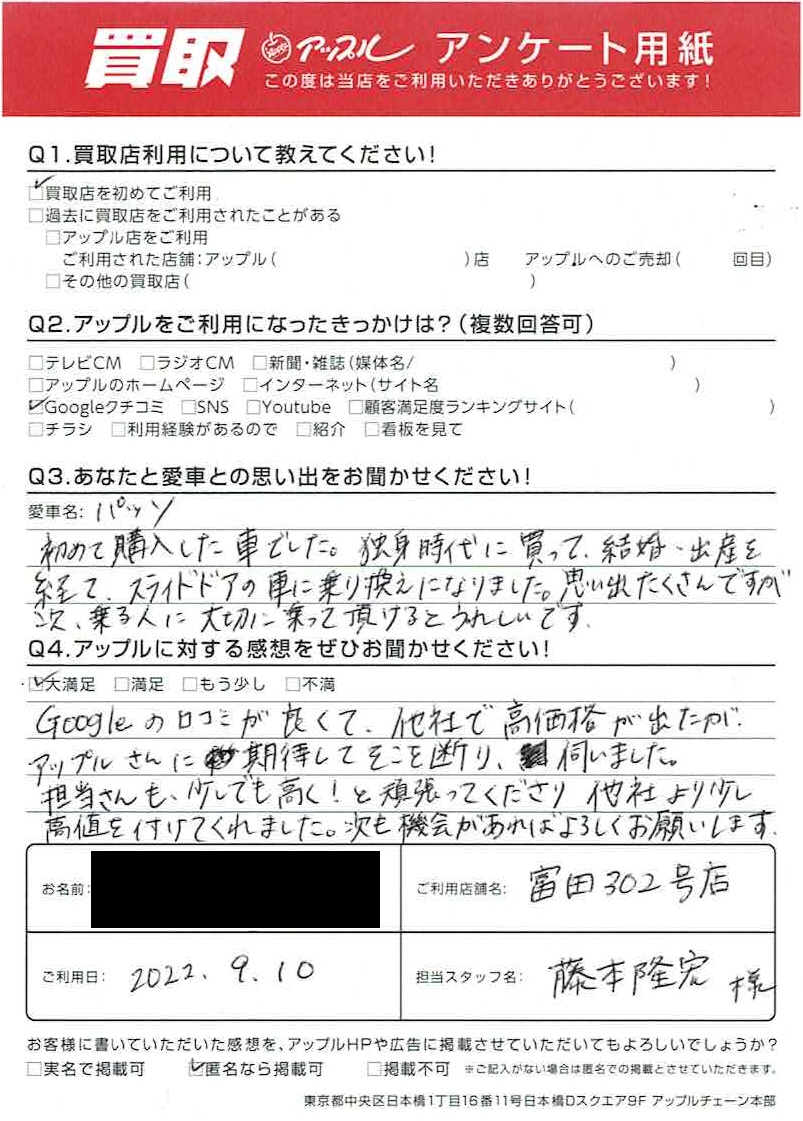 買取 アップル アンケート用紙
この度は当店をご利用いただきありがとうございます!
Q1.買取店利用について教えてください!
☑買取店を初めてご利用
□過去に買取店をご利用されたことがある
□アップル店をご利用
ご利用された店舗:アップル( )店 アップルへのご売却( 回目)
□その他の買取店( )
Q2.アップルをご利用になったきっかけは?(複数回答可)
□テレビCM □ラジオCM □新聞・雑誌(媒体名/ )
□アップルのホームページ □インターネット(サイト名 )
☑Googleクチコミ □SNS □Youtube □顧客満足度ランキングサイト( )
□チラシ □利用経験があるので □紹介 □看板を見て
Q3.あなたと愛車との思い出をお聞かせください!
愛車名: パッソ
初めて購入した車でした。独身時代に買って、結婚・出産を
経て、スライドドアの車に乗り換えになりました。思い出たくさんですが
次、乗る人に大切に乗って頂けるとうれしいです.
Q4.アップルに対する感想をぜひお聞かせください!
☑大満足 □満足 □もう少し □不満
Googleの口コミが良くて、他社で高価格が出たが、
アップルさんに期待してそこを断り、伺いました。
担当さんも、少しでも高く!と頑張ってくださり 他社より少し
高値を付けてくれました。次も機会があればよろしくお願いします.
お名前: ご利用店舗名: 富田302号店
ご利用日: 2022. 9. 10 担当スタッフ名: 藤本隆宏 様
お客様に書いていただいた感想を、アップルHPや広告に掲載させていただいてもよろしいでしょうか?
□実名で掲載可 ☑匿名なら掲載可 □掲載不可 ※ご記入がない場合は匿名での掲載とさせていただきます。
東京都中央区日本橋1丁目16番11号日本橋Dスクエア9F アップルチェーン本部